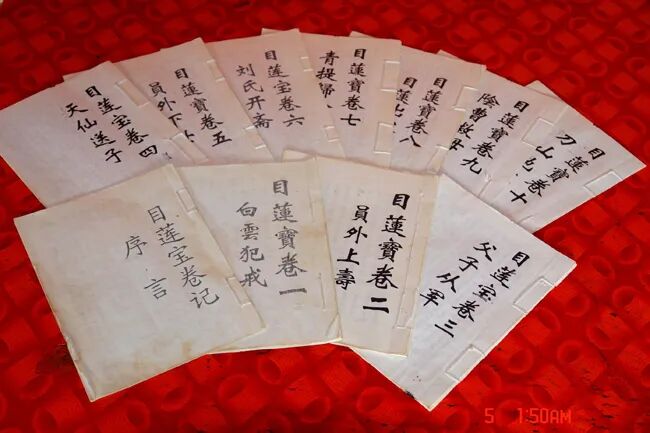 目莲宝卷四
天仙送子
目蓮寶卷五
員外下
目莲宝卷六
刘氏开斋
目蓮寶卷七
青提歸
目蓮寶卷八
目蓮
目蓮寶卷九
陰曹救母
目蓮寶卷十
刀山
目莲宝卷记
序言
目蓮寶卷一
白雲犯戒
目蓮寶卷二
員外上壽
目莲宝卷三
父子从軍
5 1:50AM